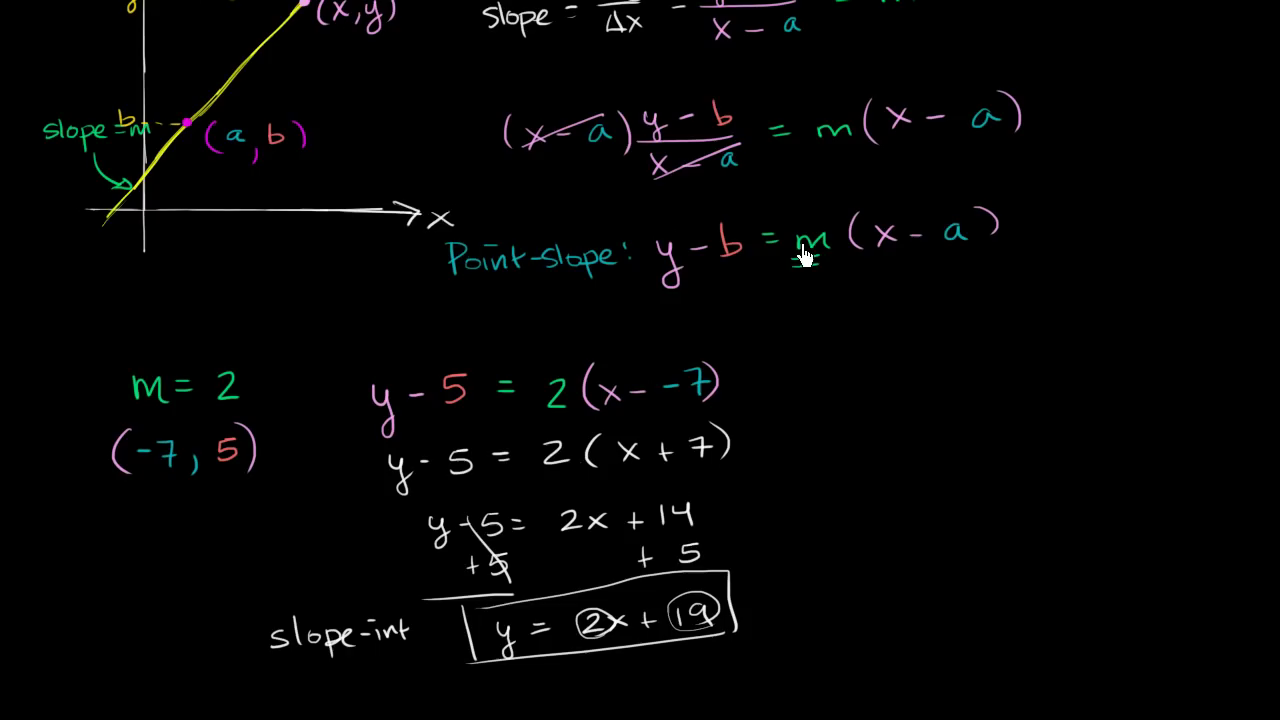 (x, y)
slope = Δx x - a
b
slope = m
(a, b)
(x - a) y - b / x - a = m(x - a)
x
Point-slope: y - b = m (x - a)
m = 2
(-7, 5)
y - 5 = 2(x - -7)
y - 5 = 2(x + 7)
y - 5 = 2x + 14
+5 + 5
slope-int y = 2x + 19